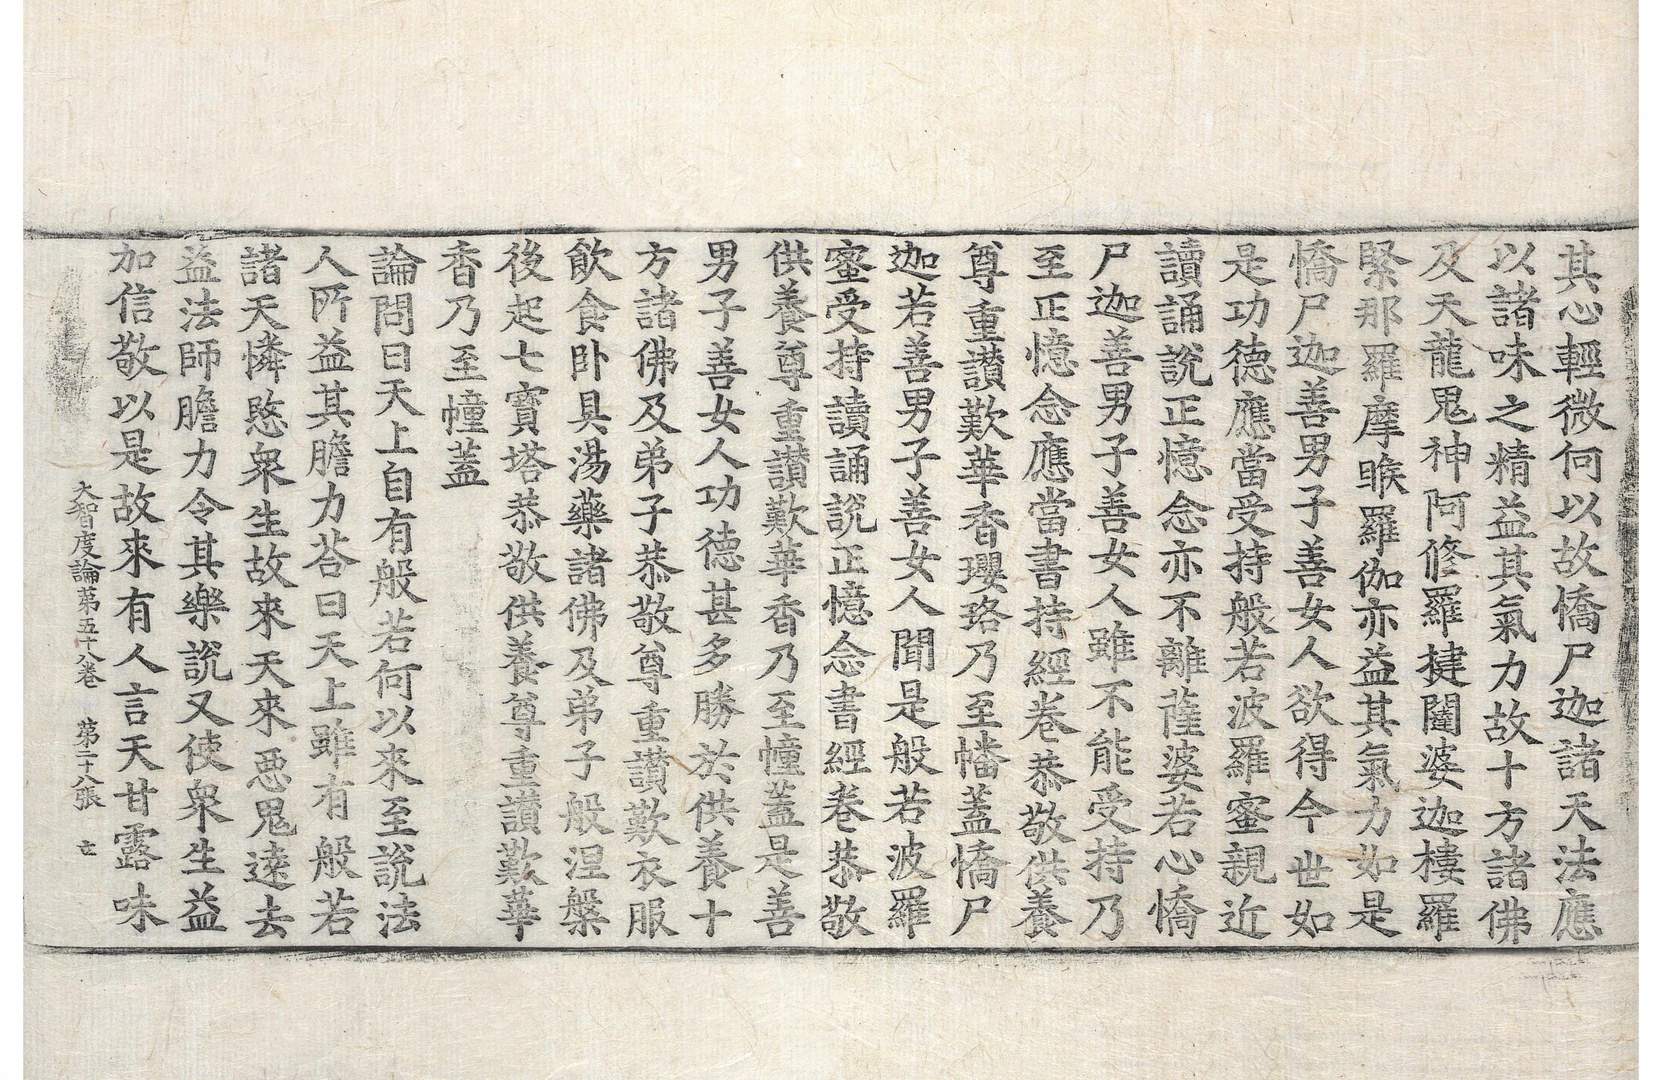 其心輕微何以故憍尸迦諸天法應
以諸味之精益其氣力故十方諸佛
及天龍鬼神阿修羅揵闥婆迦樓羅
緊那羅摩睺羅伽亦益其氣力如是
憍尸迦善男子善女人欲得今世如
是功德應當受持般若波羅蜜親近
讀誦說正憶念亦不離薩婆若心憍
尸迦善男子善女人雖不能受持乃
至正憶念應當書持經卷恭敬供養
尊重讃歎華香瓔珞乃至幡蓋憍尸
迦若善男子善女人聞是般若波羅
蜜受持讀誦說正憶念書經卷恭敬
供養尊重讃歎華香乃至幢蓋是善
男子善女人功德甚多勝於供養十
方諸佛及弟子恭敬尊重讃歎衣服
飮食卧具湯藥諸佛及弟子般涅槃
後起七寶塔恭敬供養尊重讃歎華
香乃至幢蓋
論問曰天上自有般若何以來至說法
人所益其膽力荅曰天上雖有般若
諸天憐愍衆生故來天來惡鬼遠去
益法師膽力令其樂說又使衆生益
加信敬以是故來有人言天甘露味
大智度論第五十八卷 第二十八張 亡